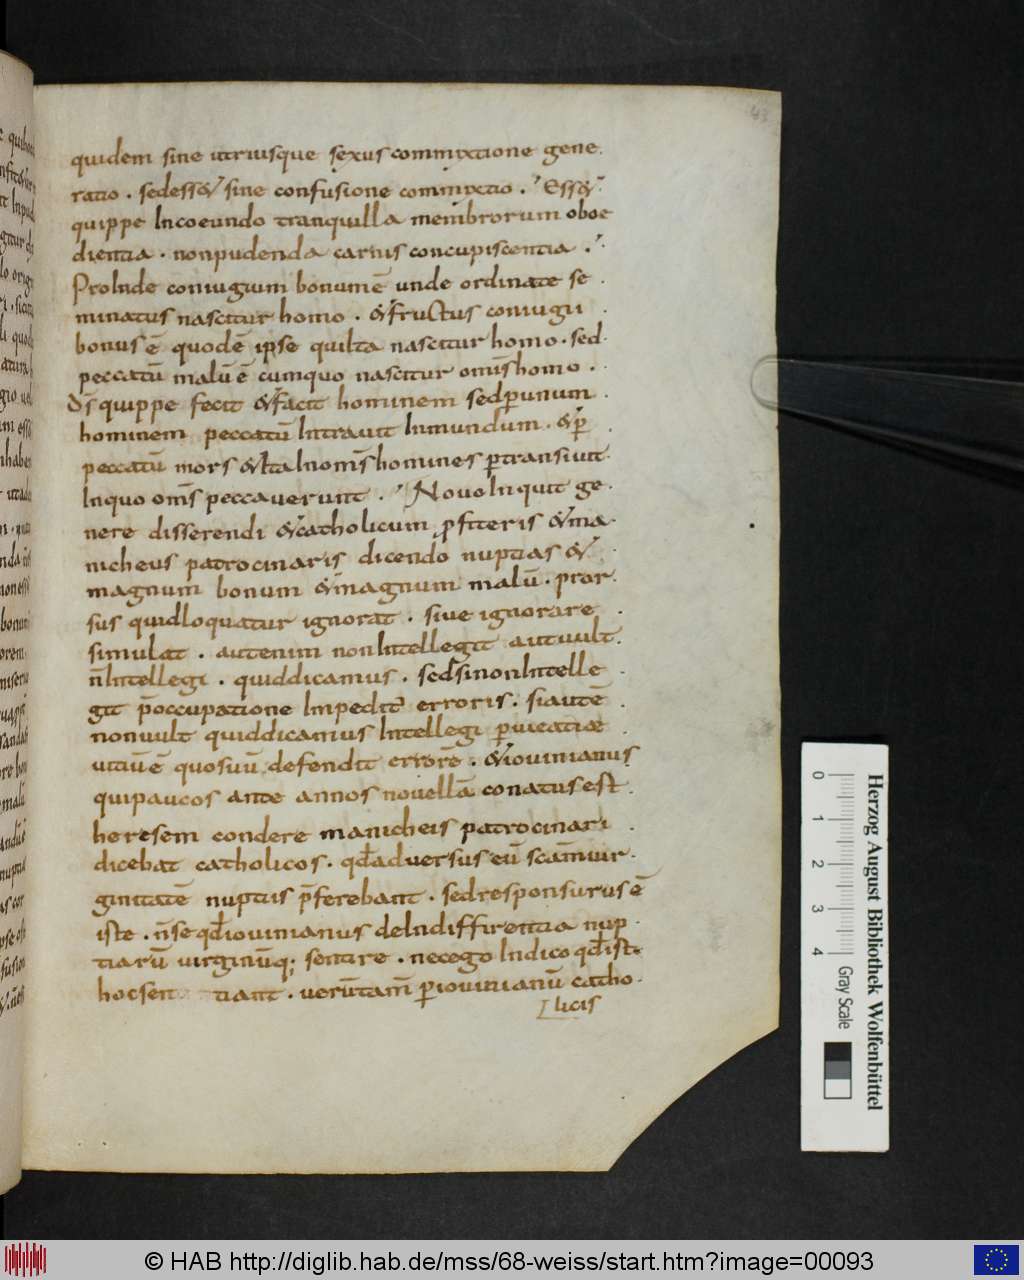 43
quidem sine utriusque sexus commixtione gene
ratio . sed ess& sine confusione commixtio . Ess&
quippe In coeundo tranquilla membrorum oboe
dientia . non pudenda carnis concupiscentia .
ProInde coniugium bonum ē unde ordinate se
minatus nascitur homo . & fructus coniugii
bonus ē quod ē ipse qui Ita nascitur homo . sed
peccatū malū ē cum quo nascitur omīs homo .
d̄s quippe fecit & facit hominem sed p̄ unum
hominem peccatū Intravit In mundum . & p̄
peccatū mors & Ita In nom̄s homines p̄transiuit
In quo om̄s peccaverunt . Novo Inquit ge
nere disserendi & catholicum p̄fiteris & ma
nicheus patrocinaris dicendo nuptias &
magnum bonum & magnum malū . pror
sus quid loquatur ignorat . sive ignorare
simulat . aut enim non Intellegit aut vult
n̄ Intellegi . quid dicamus . sed si non Intelle
git p̄occupatione Impeditr erroris . si autē
non vult quid dicamus Intellegi p̄vicatiae
vitiū ē quo suū defendit errorē . & iovinianus
qui paucos ante annos novellā conatus est
heresem condere manicheis patrocinari
dicebat catholicos . qđ adversus eū scām vir
ginitatē nuptiis p̄ferebant . sed responsurus ē
iste . n̄ se qđ iovinianus de Indiffirentia nup
tiarū virginūq; sentire . nec ego In dico qđ ist
hoc sen tiant . verūtam̄ p̄ iovinianū catho
licis
0 1 2 3 4
Gray Scale
Herzog August Bibliothek Wolfenbüttel
© HAB http://diglib.hab.de/mss/68-weiss/start.htm?image=00093